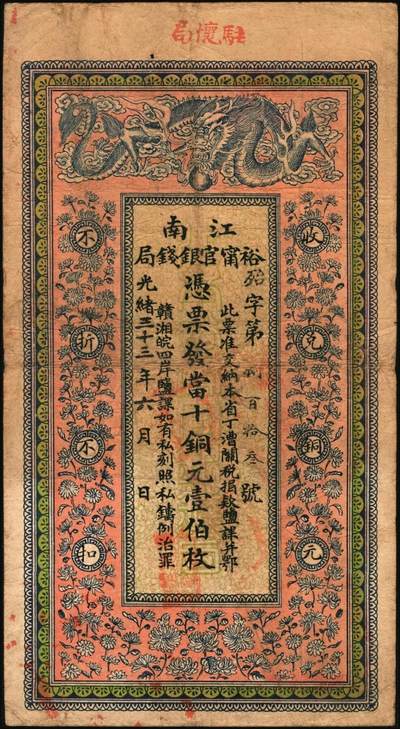 駐懷局
江南
裕甯官銀錢局
收兌銅元
不折不扣
字第 百拾叁號
此票准交納本省丁漕關稅捐款鹽課并鄂
憑票發當十銅元壹伯枚
贛湘皖四岸鹽課如有私刻照私鑄例治罪
光緒三十三年六月 日